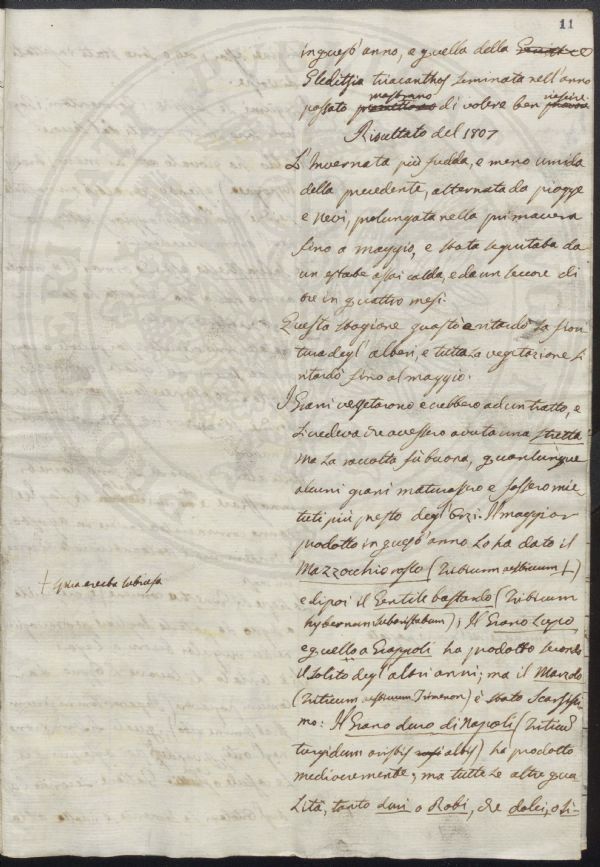 11
in quest'anno, e quella della
Gleditsia triacanthos seminata nell'anno
passato mostrano di volere ben riescire.
Risultato del 1807
L'Invernata più fredda, e meno umida
della precedente, alternata da piogge
e nevi, prolungata nella primavera
fino a maggio, e stata seguitata da
un estate assai calda, e da un seccore di
tre in quattro mesi.
Questa stagione guastò e ritardò la fiori
tura degl'alberi, e tutta la vegetazione si
ritardò fino al maggio.
I Grani vegetarono e crebbero ad un tratto, e
si credeva che avessero avuta una stretta
ma la raccolta fù buona, quantunque
alcuni grani maturassero e fossero mie
tuti più presto degl'Orzi. Il maggior
prodotto in quest'anno lo ha dato il
Mazzocchio rosso (Triticum aestivum +)
+ spica erecta
e dipoi il Gentile bastardo (Triticum
hybernum subaristatum); Il Grano Lupo
e quello a Grappoli ha prodotto secondo
il solito degl'altri anni; ma il Marzolo
(Triticum aestivum Trimenon) è stato scarsissi
mo: Il Grano duro di Napoli (Triticũ
turgidum aristis albis) ha prodotto
mediocremente; ma tutte le altre qua
lità, tanto duri o Robi, che dolci, o Si-